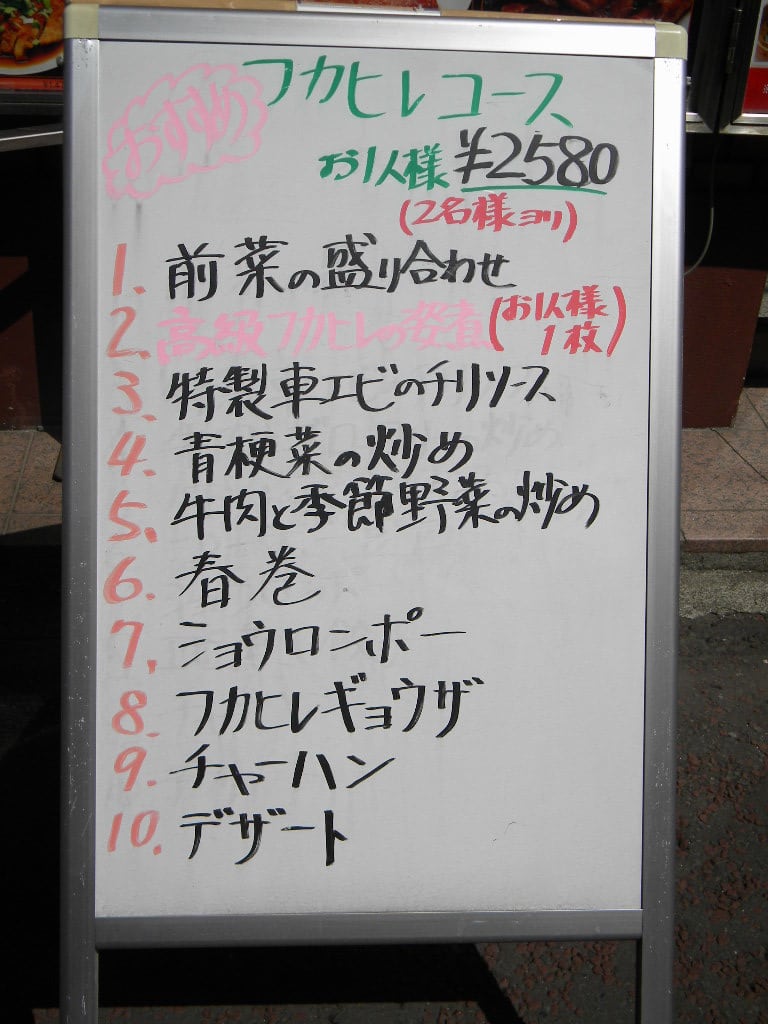 おすすめ
フカヒレコース
お1人様 ¥2580
(2名様ヨリ)
1. 前菜の盛り合わせ
2. 高級フカヒレの姿煮(お1人様1枚)
3. 特製車エビのチリソース
4. 青梗菜の炒め
5. 牛肉と季節野菜の炒め
6. 春巻
7. ショウロンポー
8. フカヒレギョウザ
9. チャーハン
10. デザート